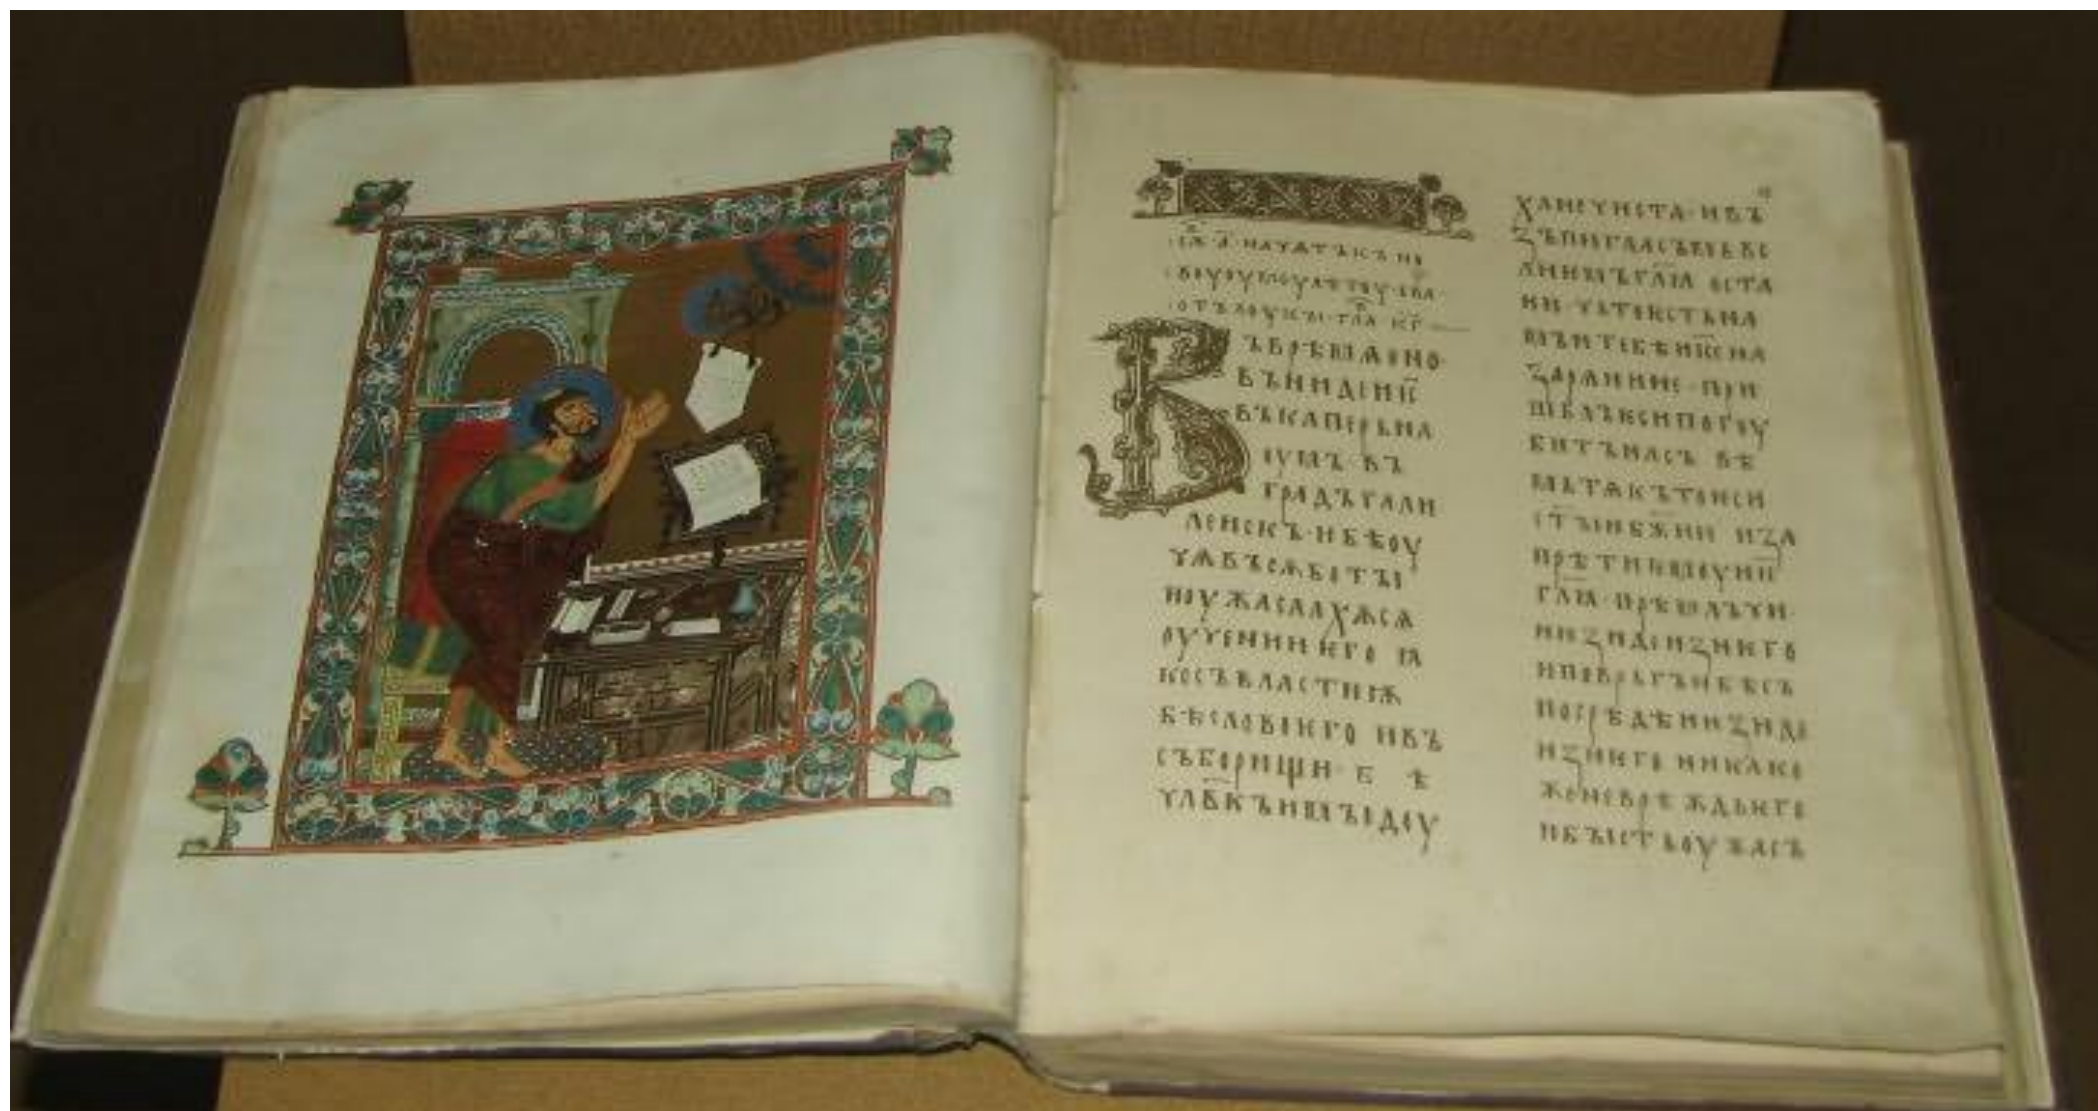 начѧтъкъ но
воуоумоу лѣтоу · ева
отъ лоукы · гла҃
Въ врѣмѧ оно ·
въниде ии҃
въ каперьна
оумъ въ
градъ гали
леискъ · и бѣ оу
чѧ въ сѫботы
и оужасаахѫсѧ
о учении ѥго ꙗ
ко съ властиѭ
бѣ слово ѥго и въ
съборищи · б ѣ
чл҃вкъ имъи доу
ха нечиста · и въ
зъпи гласъмь ве
лиѥмь гл҃ѧ оста
ни · чьто ѥстъ на
мъ и тебѣ ис҃е на
зарѧнине · при
шьлъ ѥси погоу
битъ насъ вѣ
мь тѧ къто ѥси
ст҃ъи бж҃ии и за
прѣти ѥмоу ии҃
гл҃ѧ · прѣмлъчи ·
и изиди из него
и поврьгъ и бѣсъ
посрѣдѣ изиде
из него никако
же не врѣждь ѥго
и бъисть оужасъ